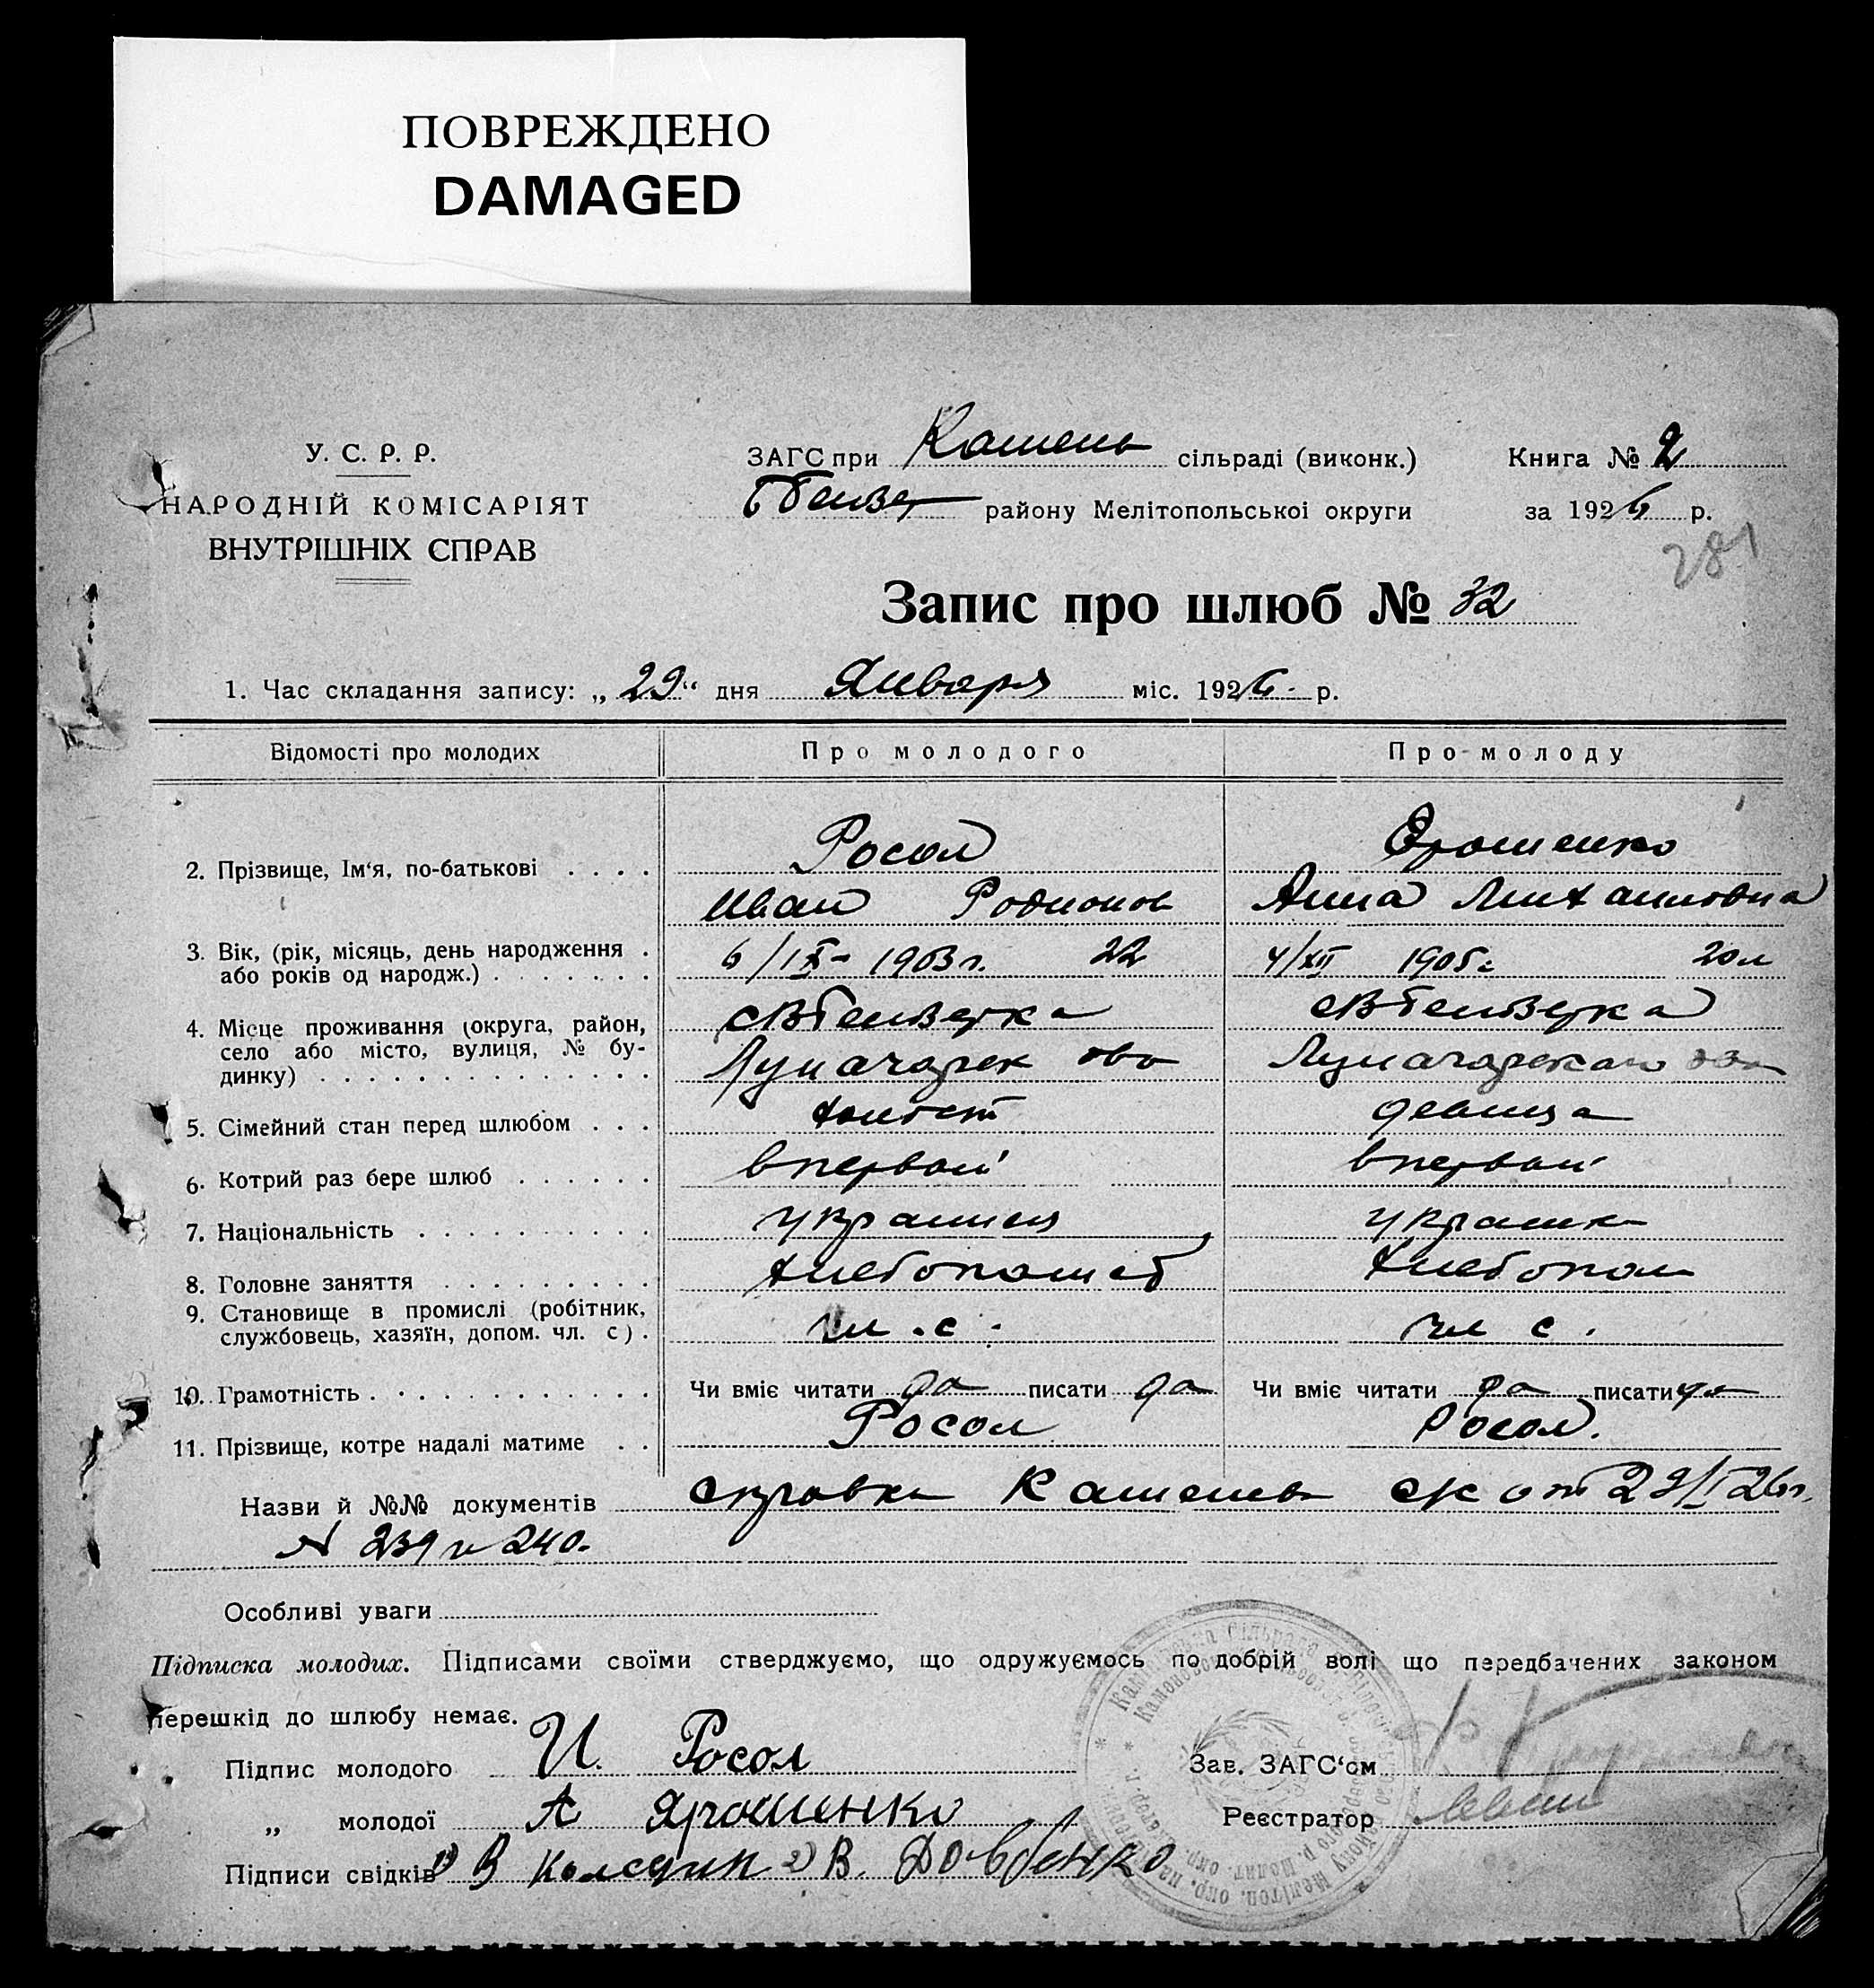 ПОВРЕЖДЕНО
DAMAGED
У. С. Р. Р.
НАРОДНІЙ КОМІСАРІЯТ
ВНУТРІШНІХ СПРАВ
ЗАГС при Камень сільраді (виконк.)
району Мелітопольської округи
Книга № 2
за 1926 р.
281
Запис про шлюб № 32
1. Час складання запису: „ 29 “ дня Января міс. 1926 р.
Відомості про молодих Про молодого Про молоду
2. Прізвище, Ім‘я, по-батькові . . . . Росол Ярошенко
Иван Родионов Анна Михаиловна
3. Вік, (рік, місяць, день народження .
або років од народж.) . . . . . . . 6/IX- 1903 г. 22 4/XII 1905 г 20 л
4. Місце проживання (округа, район,
село або місто, вулиця, № бу-
динку) . . . . . . . . . . . . . . .
5. Сімейний стан перед шлюбом . . . холост девица
6. Котрий раз бере шлюб . . . . . . впервой впервой
7. Національність . . . . . . . . . . украинец украинк
8. Головне заняття . . . . . . . . . хлебопашеб хлебопаш
9. Становище в промислі (робітник,
службовець, хазяїн, допом. чл. с) . чл. с. чл с.
10. Грамотність . . . . . . . . . . . . Чи вміє читати да писати да Чи вміє читати да писати да
11. Прізвище, котре надалі матиме . . Росол Росол.
Назви й №№ документів справка Камень с/с от 29/I 26 г.
№ 239 и 240.
Особливі уваги
Підписка молодих. Підписами своїми стверджуємо, що одружуємось по добрій волі що передбачених законом
перешкід до шлюбу немає.
Підпис молодого И. Росол
Зав. ЗАГС‘ом
„ молодої А Ярошенко
Реєстратор
Підписи свідків 1) В 2) В. Довбенко